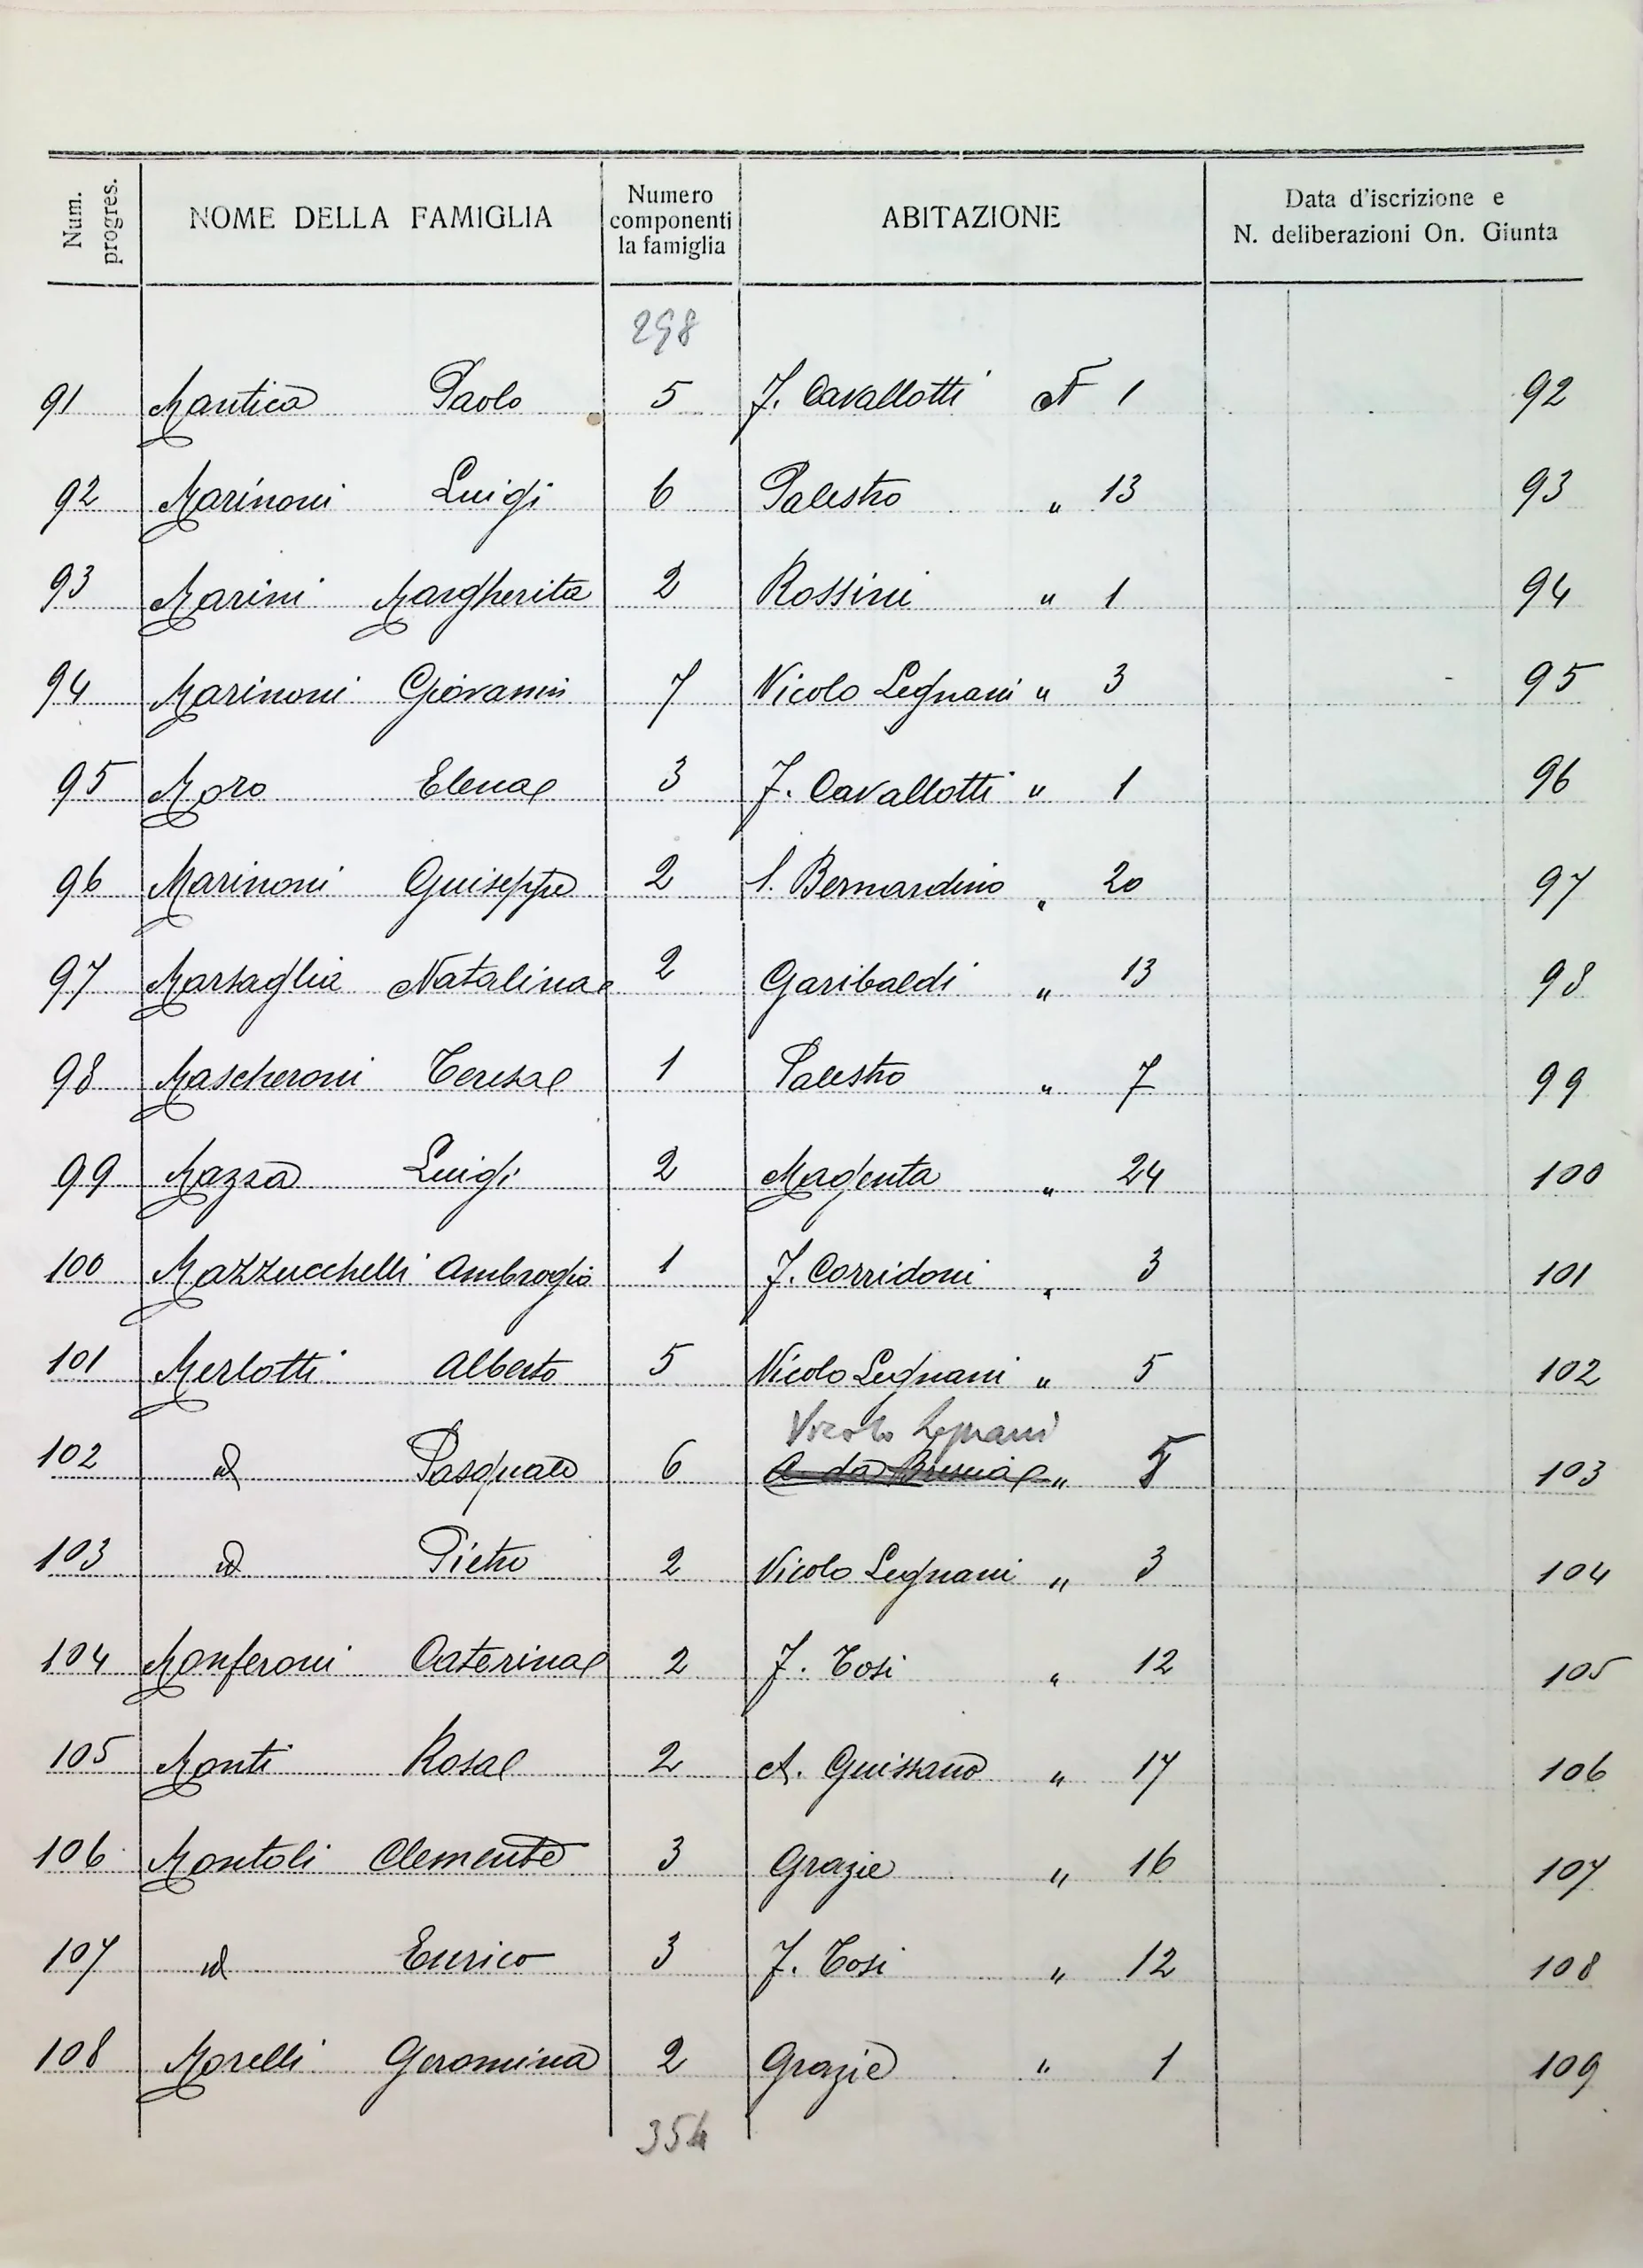 Num. progres. NOME DELLA FAMIGLIA Numero componenti la famiglia ABITAZIONE Data d'iscrizione e N. deliberazioni On. Giunta
298
91 Mantica Paolo 5 F. Cavallotti N 1 92
92 Marinoni Luigi 6 Palestro " 13 93
93 Marini Margherita 2 Rossini " 1 94
94 Marinoni Giovanni 7 Nicolo Legnani " 3 95
95 Moro Elena 3 F. Cavallotti " 1 96
96 Marinoni Guiseppe 2 S. Bernardino " 20 97
97 Marsaglia Natalina 2 Garibaldi " 13 98
98 Mascheroni Teresa 1 Palestro " 7 99
99 Mazza Luigi 2 Magenta " 24 100
100 Mazzucchelli Ambrogio 1 F. Corridoni " 3 101
101 Merlotti Alberto 5 Nicolo Legnani " 5 102
Nicolo Legnani
102 id Pasquale 6 A. da Brescia " 5 103
103 id Pietro 2 Nicolo Legnani " 3 104
104 Monferoni Caterina 2 F. Tosi " 12 105
105 Monti Rosa 2 A. Guissano " 17 106
106 Montoli Clemente 3 Grazie " 16 107
107 id Enrico 3 F. Tosi " 12 108
108 Morelli Geromina 2 Grazie " 1 109
354